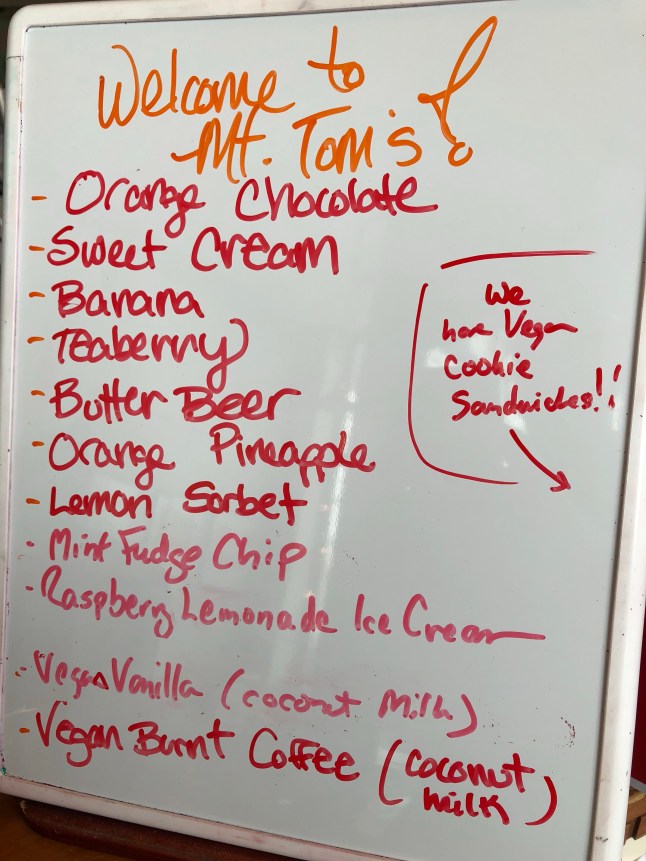 Welcome to
Mt. Tom's!
- Orange Chocolate
- Sweet Cream
- Banana
- Teaberry
- Butter Beer
- Orange Pineapple
- Lemon Sorbet
- Mint Fudge Chip
- Raspberry Lemonade Ice Cream
- Vegan Vanilla (coconut milk)
- Vegan Burnt Coffee (coconut
milk)
We
have Vegan
Cookie
Sandwiches!!